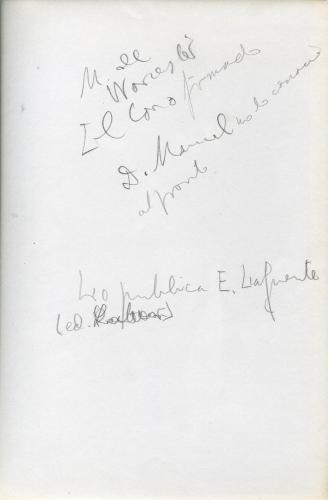 M de
El Coro firmado
D. Manuel no lo conoció
al pronto.
Lo publica E. Lafuente
(ed.